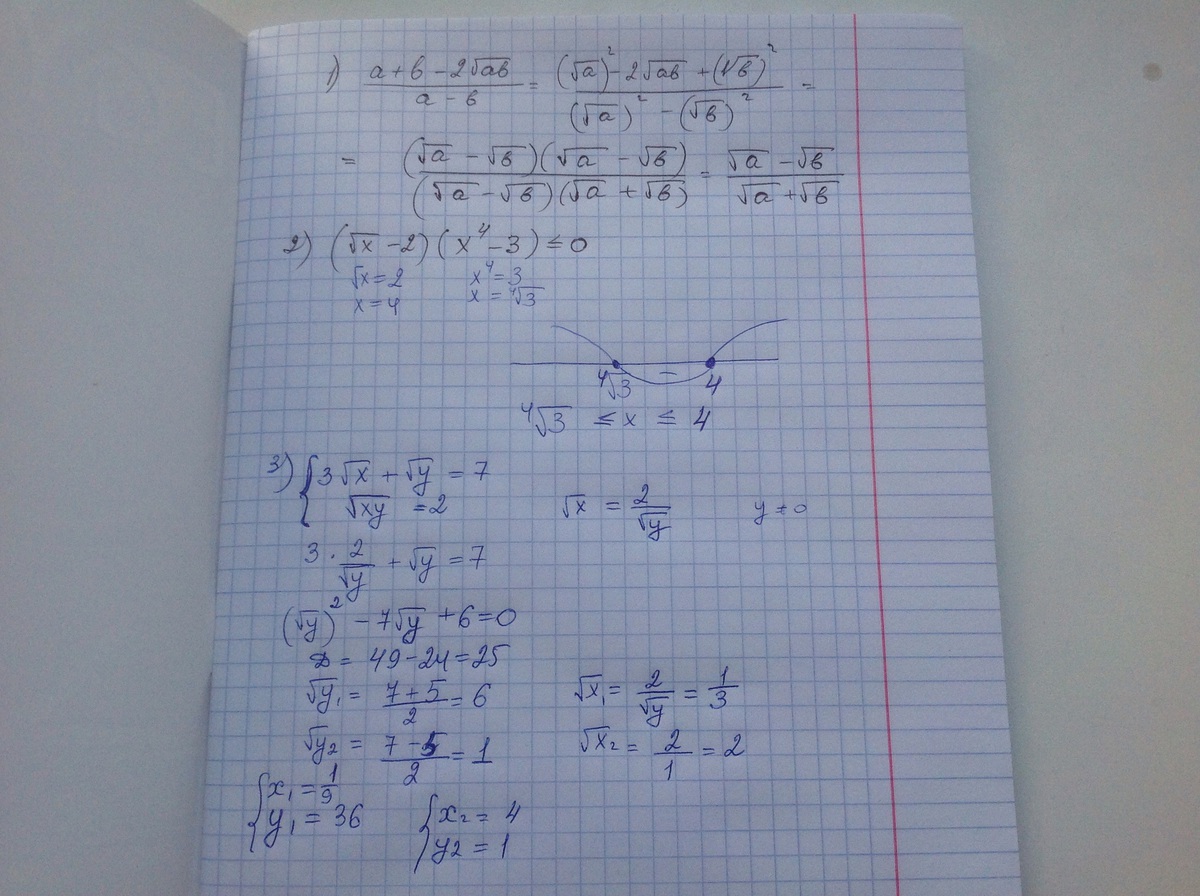 1) (a + b - 2√ab)/(a - b) = ((√a)² - 2√ab + (√b)²)/((√a)² - (√b)²) =
= ((√a - √b)(√a - √b))/((√a - √b)(√a + √b)) = (√a - √b)/(√a + √b)
2) (√x - 2)(x⁴ - 3) ≤ 0
√x = 2 x⁴ = 3
x = 4 x = ⁴√3
-
⁴√3 4
⁴√3 ≤ x ≤ 4
3) { 3√x + √y = 7
√xy = 2 √x = 2/√y y ≠ 0
3 · 2/√y + √y = 7
(√y)² - 7√y + 6 = 0
D = 49 - 24 = 25
√y₁ = (7 + 5)/2 = 6 √x₁ = 2/√y = 1/3
√y₂ = (7 - 5)/2 = 1 √x₂ = 2/1 = 2
{ x₁ = 1/9
y₁ = 36 { x₂ = 4
y₂ = 1